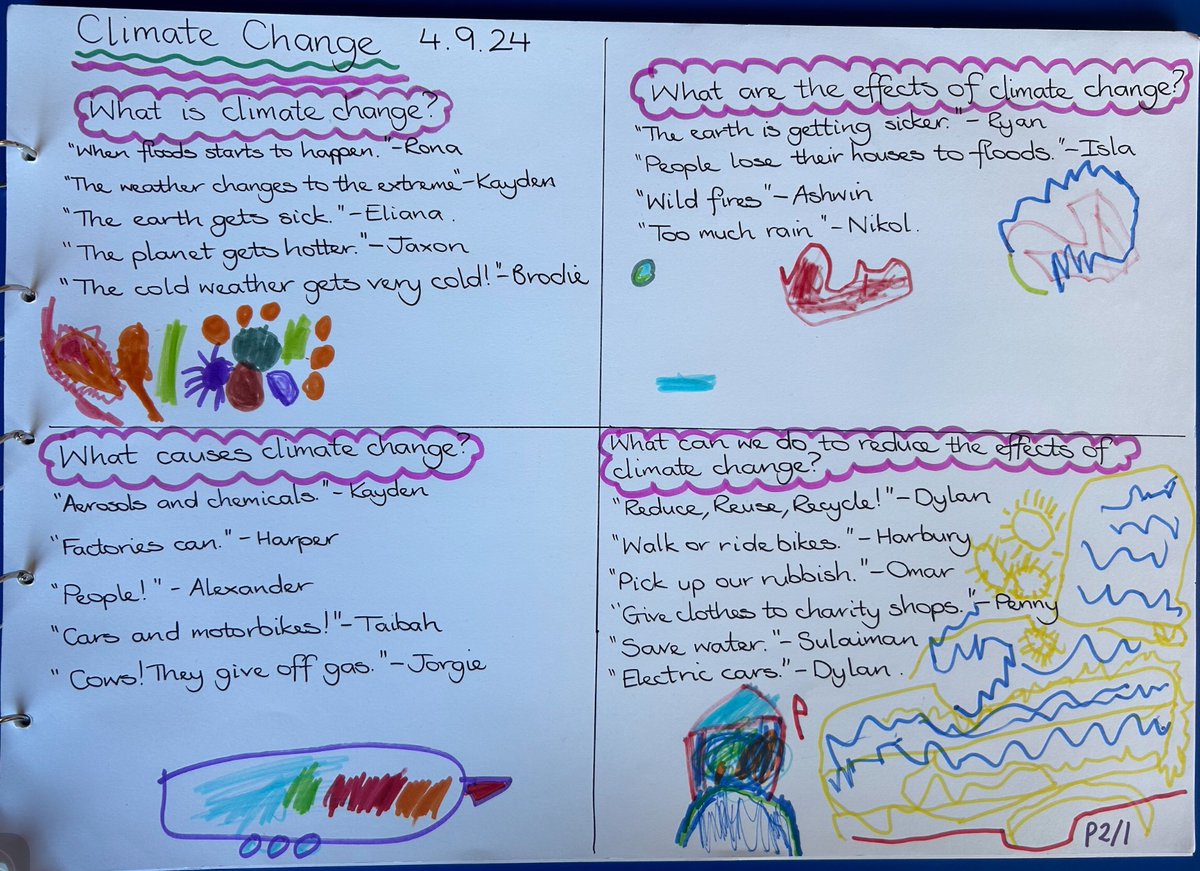 Climate Change 4.9.24
What is climate change?
"When floods starts to happen."-Rona
"The weather changes to the extreme"-Kayden
"The earth gets sick."-Eliana.
"The planet gets hotter."-Jaxon
"The cold weather gets very cold!"-Brodie
What are the effects of climate change?
"The earth is getting sicker."-Ryan
"People lose their houses to floods."-Isla
"Wild fires"-Ashwin
"Too much rain"-Nikol.
What causes climate change?
"Aerosols and chemicals."-Kayden
"Factories can."-Harper
"People!"-Alexander
"Cars and motorbikes!"-Taibah
"Cows! They give off gas."-Jorgie
What can we do to reduce the effects of
climate change?
"Reduce, Reuse, Recycle!"-Dylan
"Walk or ride bikes."-Harbury
"Pick up our rubbish."-Omar
"Give clothes to charity shops."-Penny
"Save water."-Sulaiman
"Electric cars."-Dylan.
P
P2/1